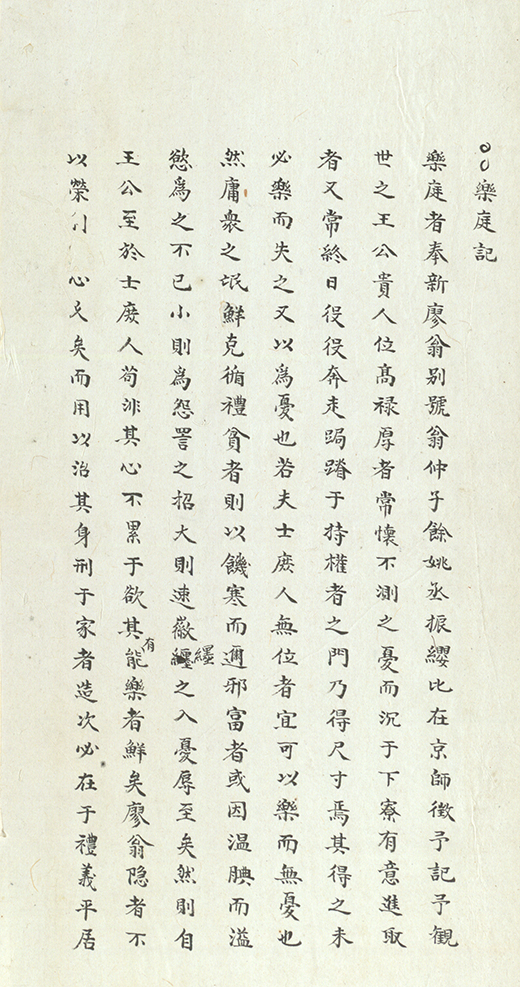 樂庭記
樂庭者奉新廖翁别號翁仲子餘姚丞振纓比在京師徵予記予觀
世之王公貴人位髙禄厚者常懷不測之憂而沉于下寮有意進取
者又常終日役役奔走跼蹐于持權者之門乃得尺寸焉其得之未
必樂而失之又以爲憂也若夫士庶人無位者宜可以樂而無憂也
然庸衆之氓鮮克循禮貧者則以饑寒而適邪富者或因温腴而溢
慾爲之不已小則爲怨詈之招大則速徽纆之入憂辱至矣然則自
王公至於士庶人苟非其心不累于欲其能有樂者鮮矣廖翁隐者不
以榮利心久矣而用以治其身刑于家者造次必在于禮義平居